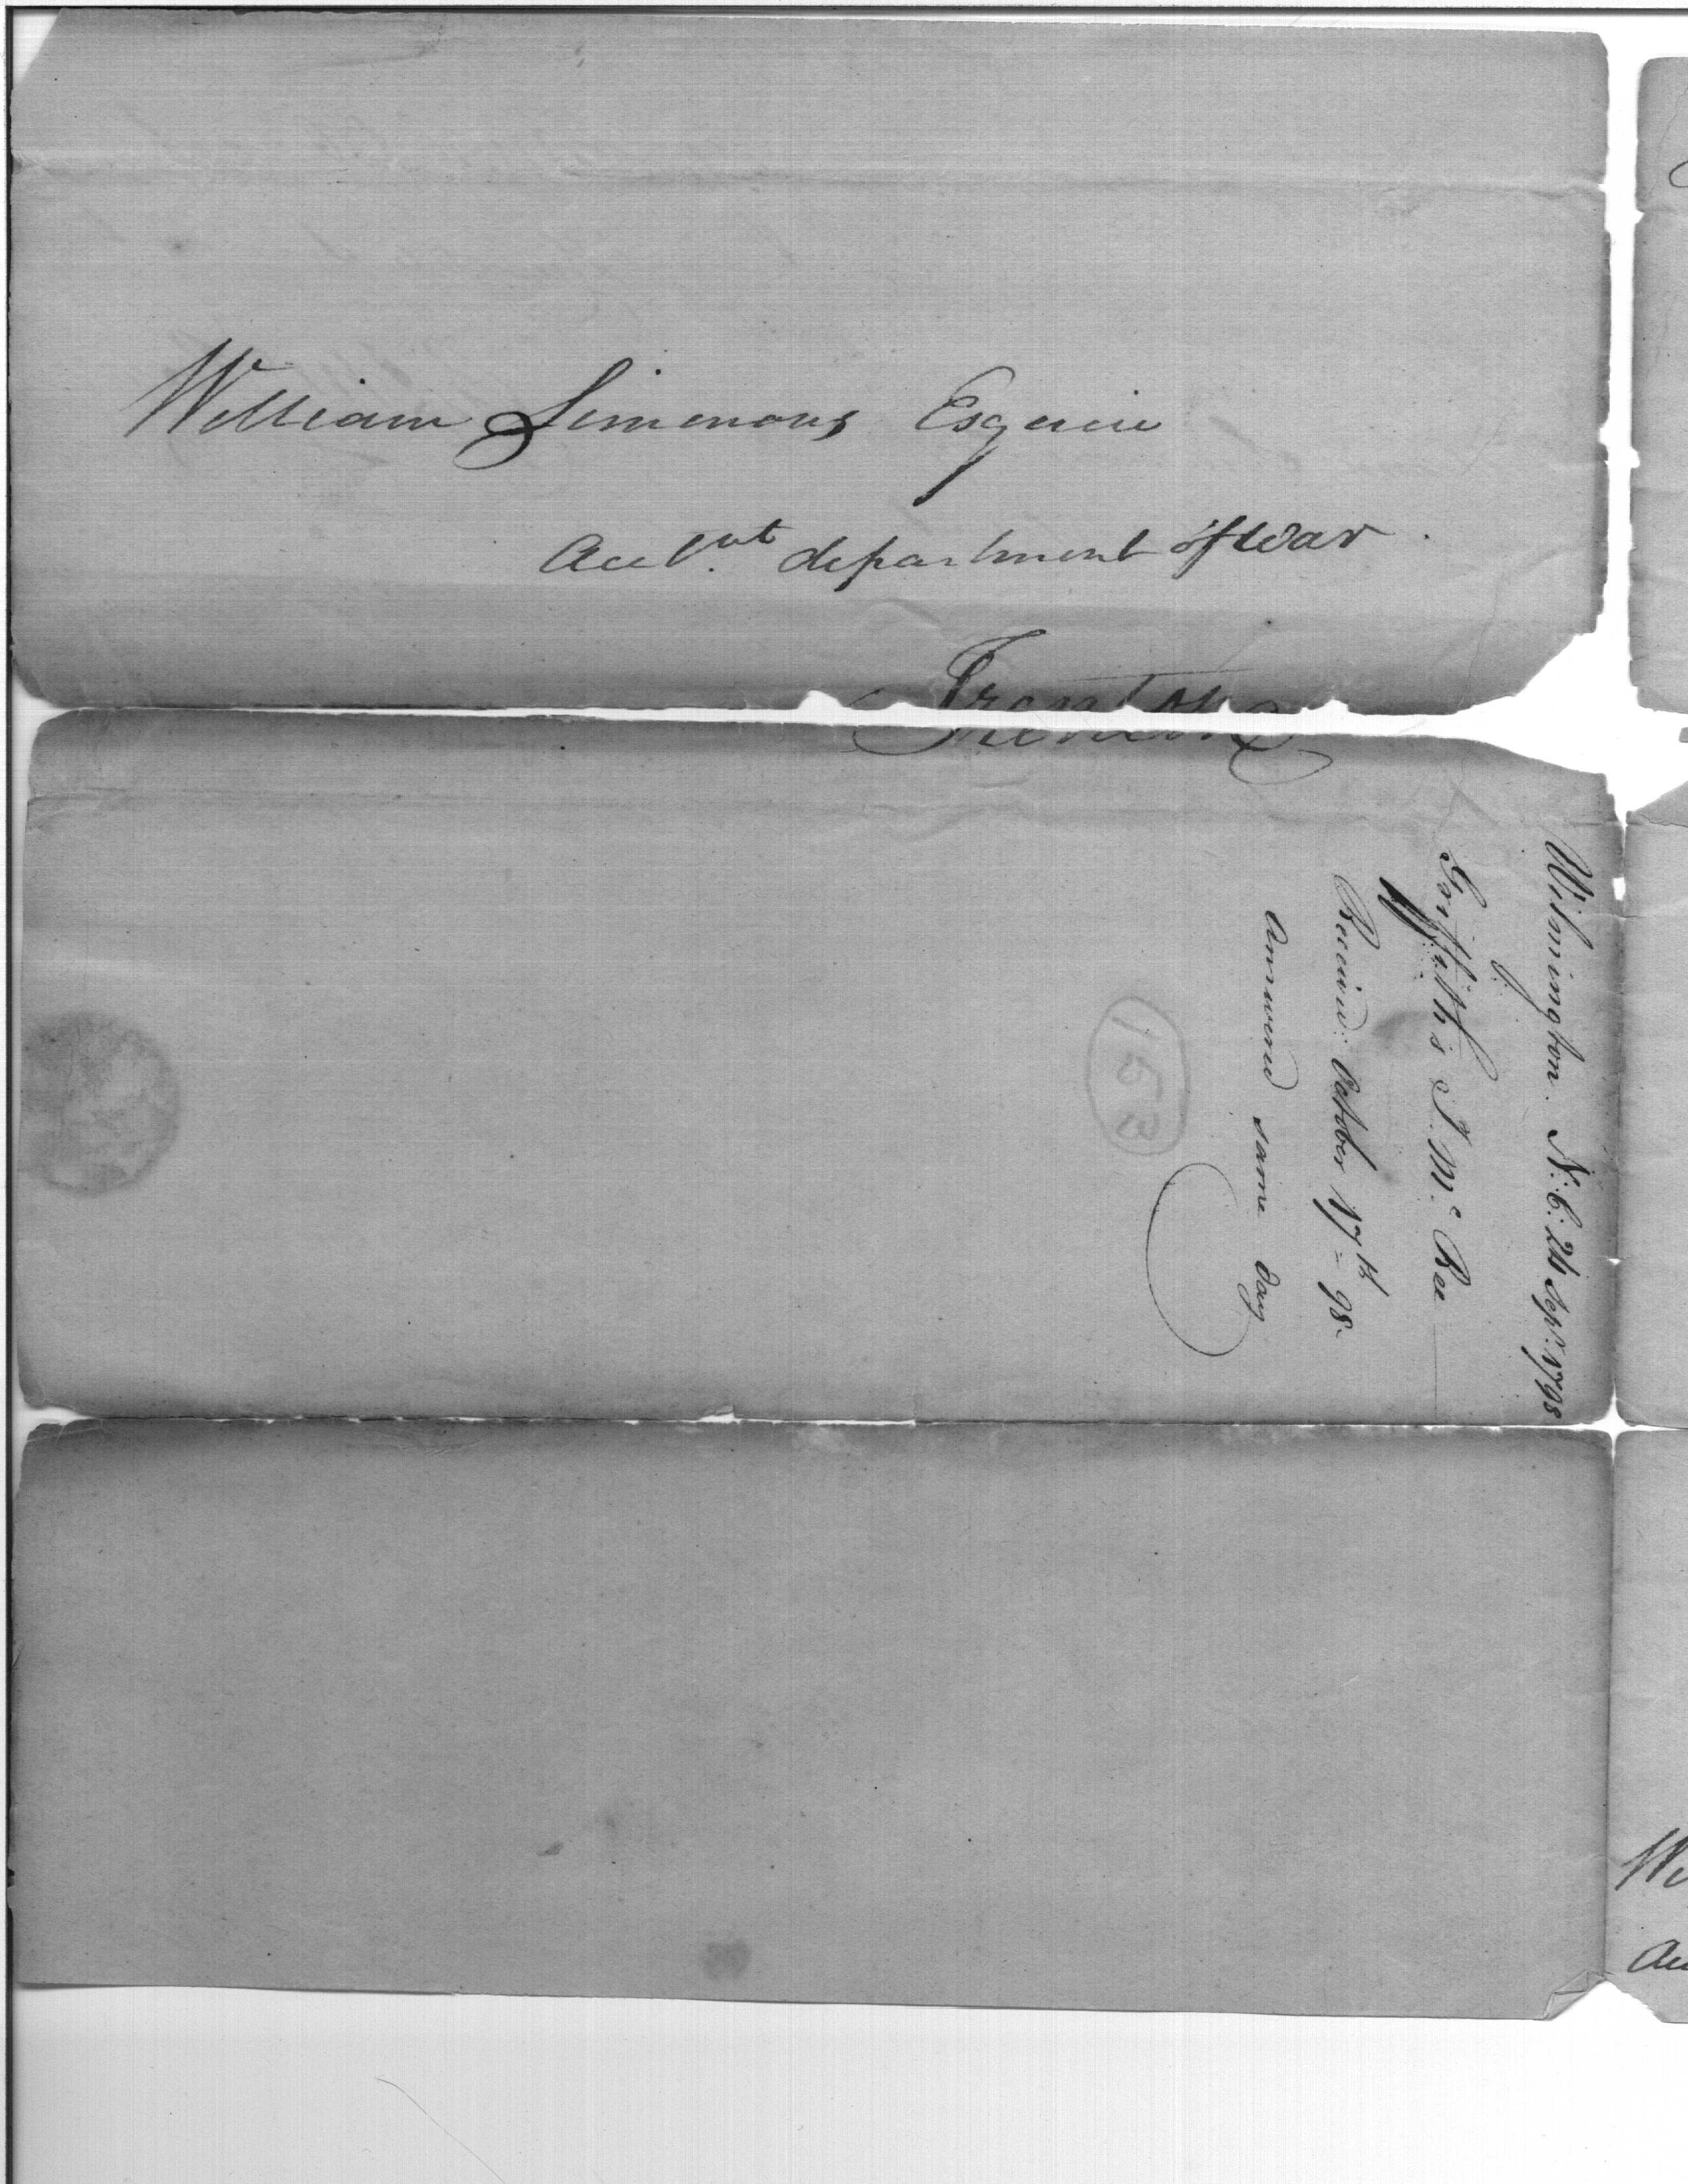 William Simmons Esquire
Acct.nt department of War
Trenton
Wilmington. N: C: 24 Sept: 1798
Griffith J. McRee
Received: October 17th = 98.
Answered same day
163
We